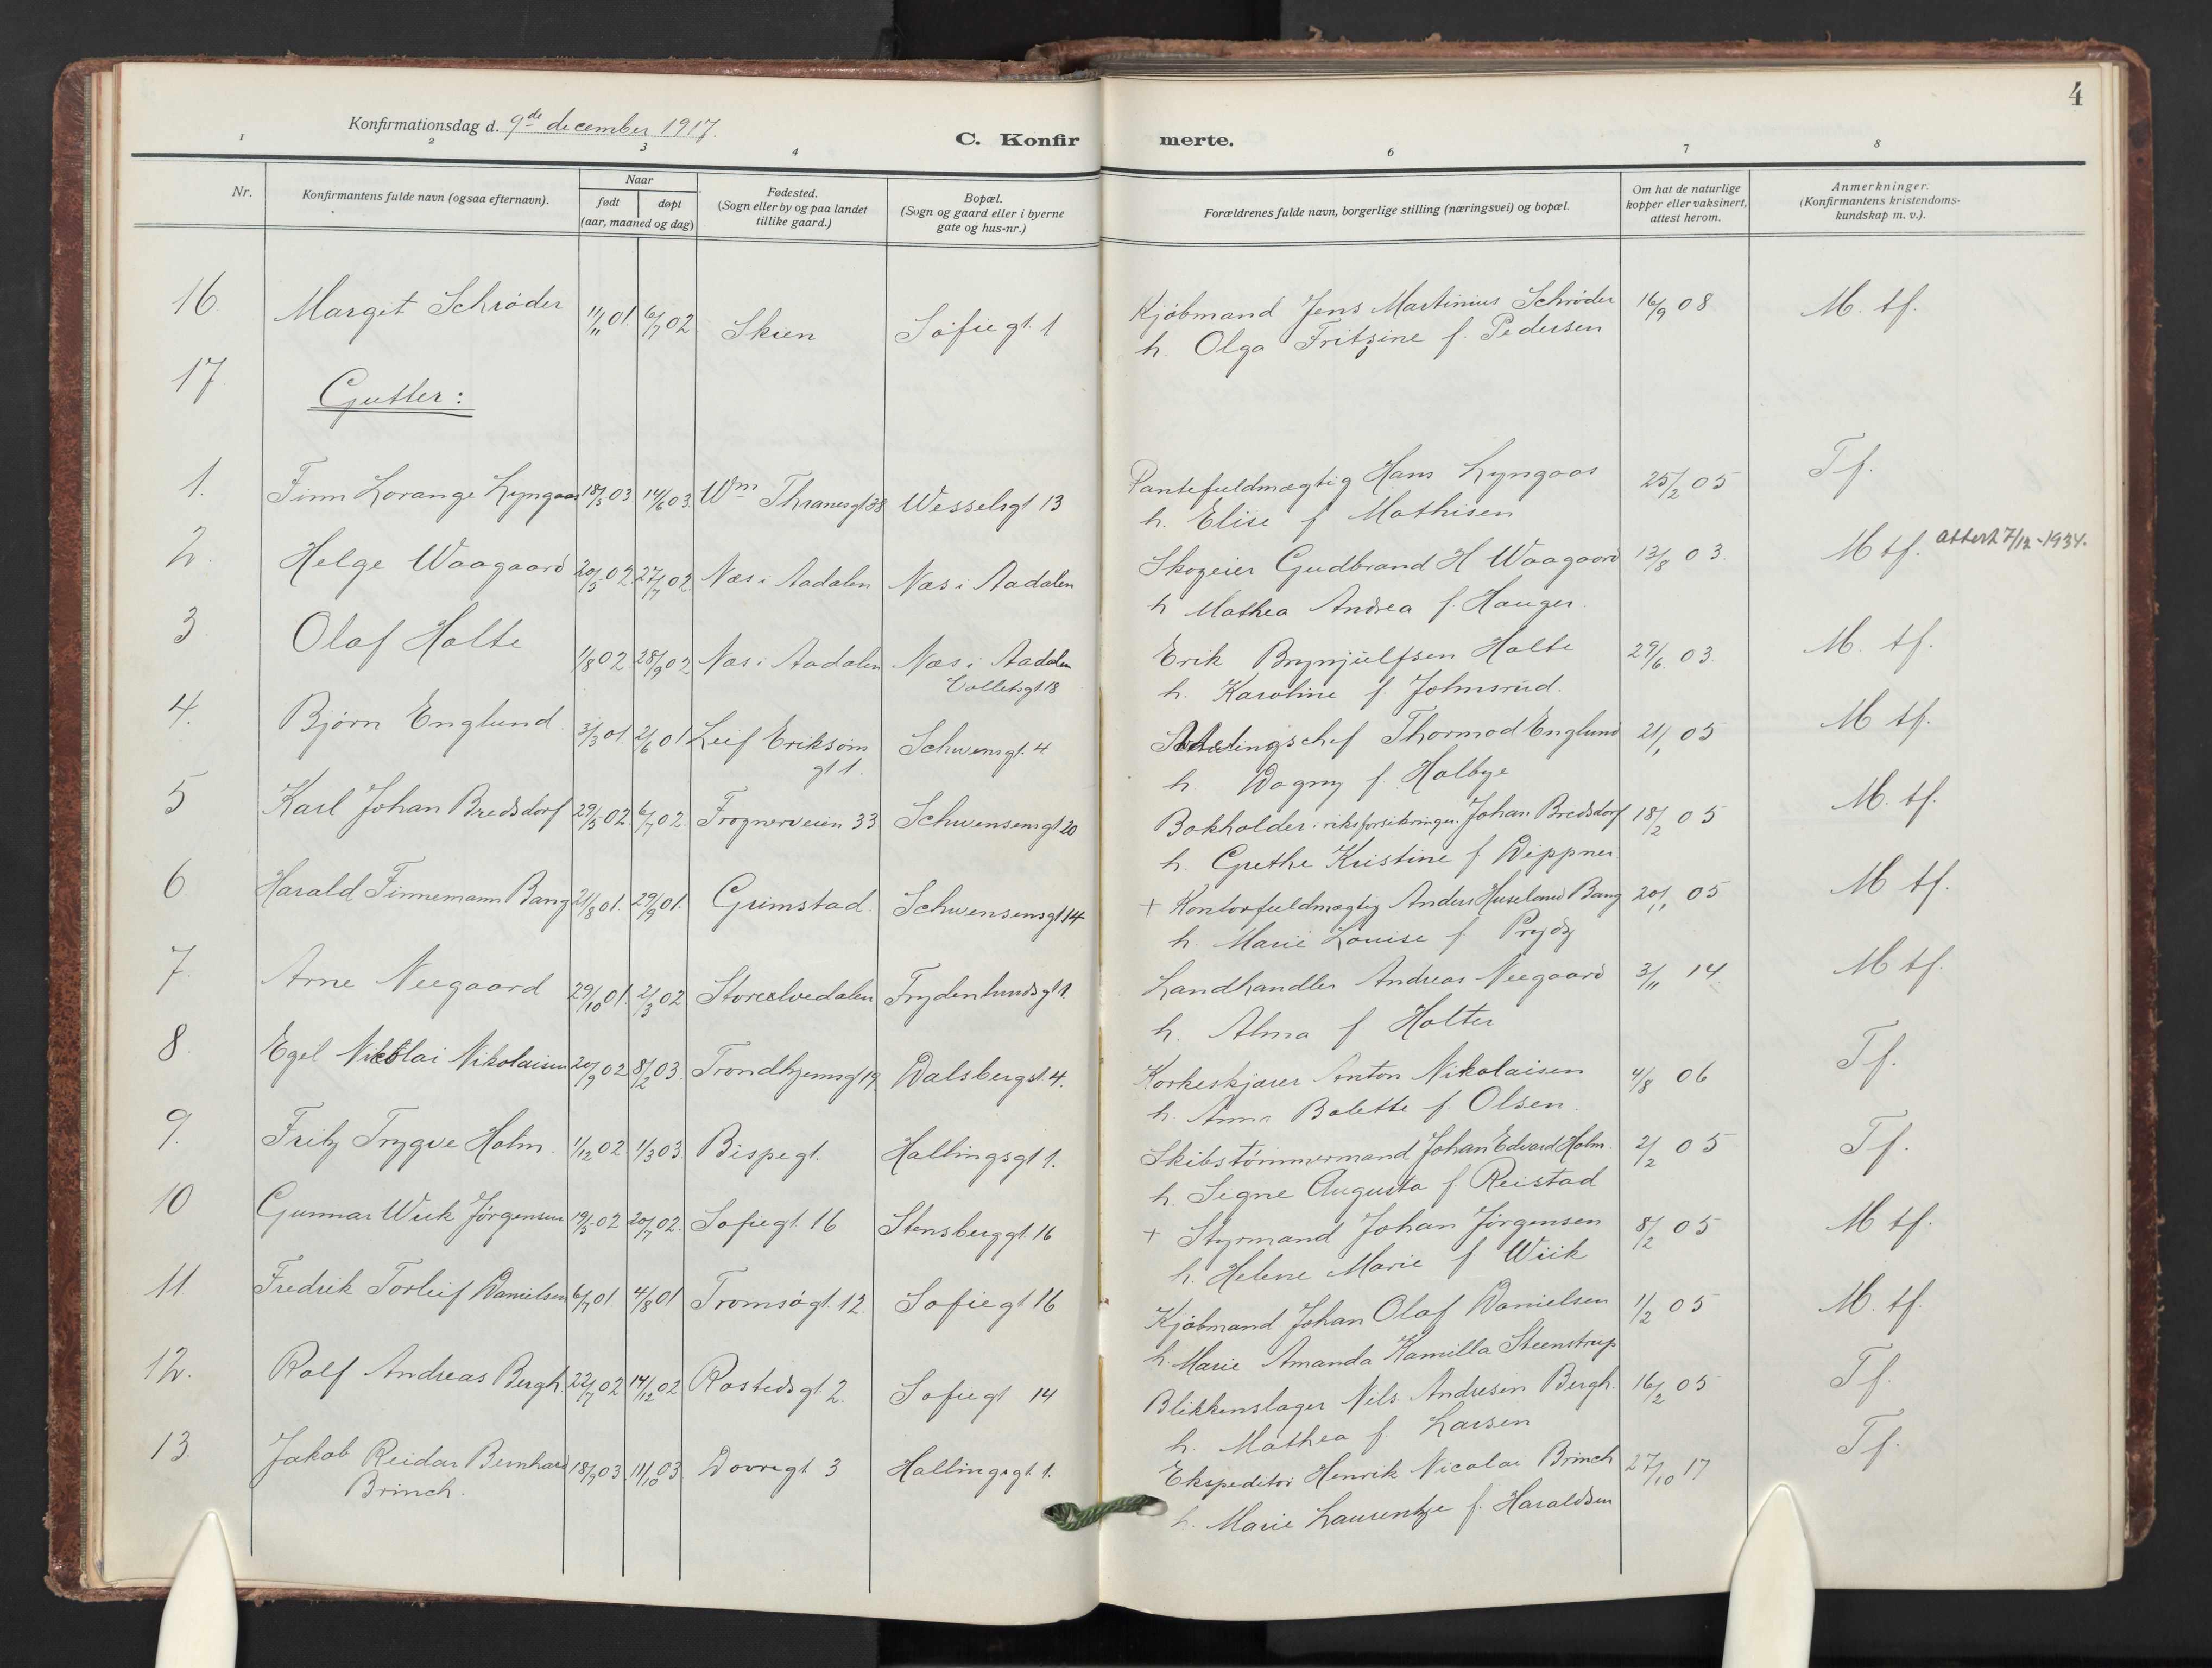 4
Konfirmationsdag d. 9de december 1917.
C. Konfirmerte.
1 2 3 4 6 7 8
Nr.
Konfirmantens fulde navn (ogsaa efternavn).
Naar
født døpt
(aar, maaned og dag)
Fødested.
(Sogn eller by og paa landet
tillike gaard.)
Bopæl.
(Sogn og gaard eller i byerne
gate og hus-nr.)
Forældrenes fulde navn, borgerlige stilling (næringsvei) og bopæl.
Om hat de naturlige
kopper eller vaksinert,
attest herom.
Anmerkninger.
(Konfirmantens kristendoms-
kundskap m. v.).
16 Margit Schrøder 11/11 01. 6/7 02 Skien Sofiegt. 1 Kjøbmand Jens Martinius Schrøder 16/9 08 M. tf.
h. Olga Fritzine f. Pedersen
17.
Gutter:
1. Finn Lorange Lyngaas 18/5 03 14/6 03. Wm Thranesgt 38 Wesselsgt 13 Pantefuldmægtig Hans Lyngaas 25/2 05 Tf.
h. Elise f Mathisen
2. Helge Waagaard 20/5 02 27/7 02. Næs i Aadalen Næs i Aadalen Skogeier Gudbrand H Waagaard 13/8 03. M tf. attest 7/12-1934.
h Mathea Andrea f. Hauger.
3 Olaf Holte 1/8 02. 28/9 02 Næs i Aadalen Næs i Aadalen Erik Brynjulfsen Holte 29/6. 03. M. tf.
Colletsgt 18
h. Karoline f. Johnsrud.
4. Bjørn Englund. 3/3 01. 2/6 01 Leif Eriksøns Schwensgt. 4 Thormod Englund 21/1 05 M tf.
gt 1.
h. Dagny f. Holbye
5 Karl Johan Bredsdorf 29/5 02. 6/7 02. Frognerveien 33 Schwensensgt 20 Bokholder i riksforsikringen Johan Bredsdorf 18/2 05 M. tf.
h. Grethe Kristine f Wippner
6 Harald Finnemann Bang 21/8 01. 29/9 01. Grimstad. Schwensensgt 14 + Kontorfuldmægtig Anders Huseland Bang 20/11 05 M tf.
h. Marie Louise f. Prydz
7. Arne Neegaard 29/10 01. 2/3 02. Storeelvedalen Frydenlundsgt 1. Landhandler Andreas Neegaard 3/11 14. M tf.
h. Alma f Holter
8. Egil Nikolai Nikolaisen 20/9 02 8/2 03. Trondhjemsgt 19 Dalsbergst. 4. Korkeskjærer Anton Nikolaisen 4/8 06 Tf.
h. Anna Bolette f. Olsen.
9. Fritz Trygve Holm. 1/12 02. 1/3 03. Bispegt. Hallingsgt 1. Skibstømmermand Johan Edvard Holm. 2/2 05 Tf.
h. Signe Augusta f Reistad
10 Gunnar Wiik Jørgensen 19/5 02 20/7 02. Sofiegt. 16 Stensberggt. 16 + Styrmand Johan Jørgensen 8/2 05 M tf.
h. Helene Marie f. Wiik
11. Fredrik Torleif Danielsen 6/7 01. 4/8 01 Tromsøgt. 12. Sofiegt 16 Kjøbmand Johan Olaf Danielsen 1/2 05 M. tf.
h. Marie Amanda Kamilla Steenstrup
12. Rolf Andreas Bergh. 22/7 02 14/12 02 Rostedsgt 2. Sofiegt 14 Blikkenslager Nils Andresen Bergh. 16/2 05 Tf.
h. Mathea f. Larsen
13. Jakob Reidar Bernhard 18/9 03. 11/10 03 Dovregt 3 Hallingsgt 1. Ekspeditør Henrik Nicolai Brinch 27/10 17 Tf.
Brinch.
h. Marie Laurentze f. Haraldsen